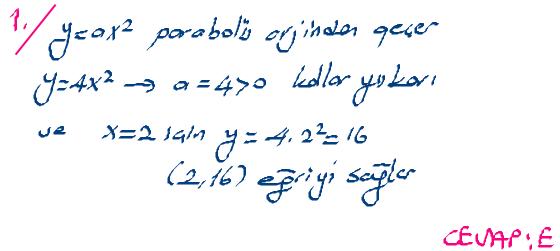 1./ y=ax² parabolü orjinden geçer
y=4x² → a=4>0 kollar yukarı
ve x=2 için y=4.2²=16
(2,16) eğriyi sağlar
CEVAP:E